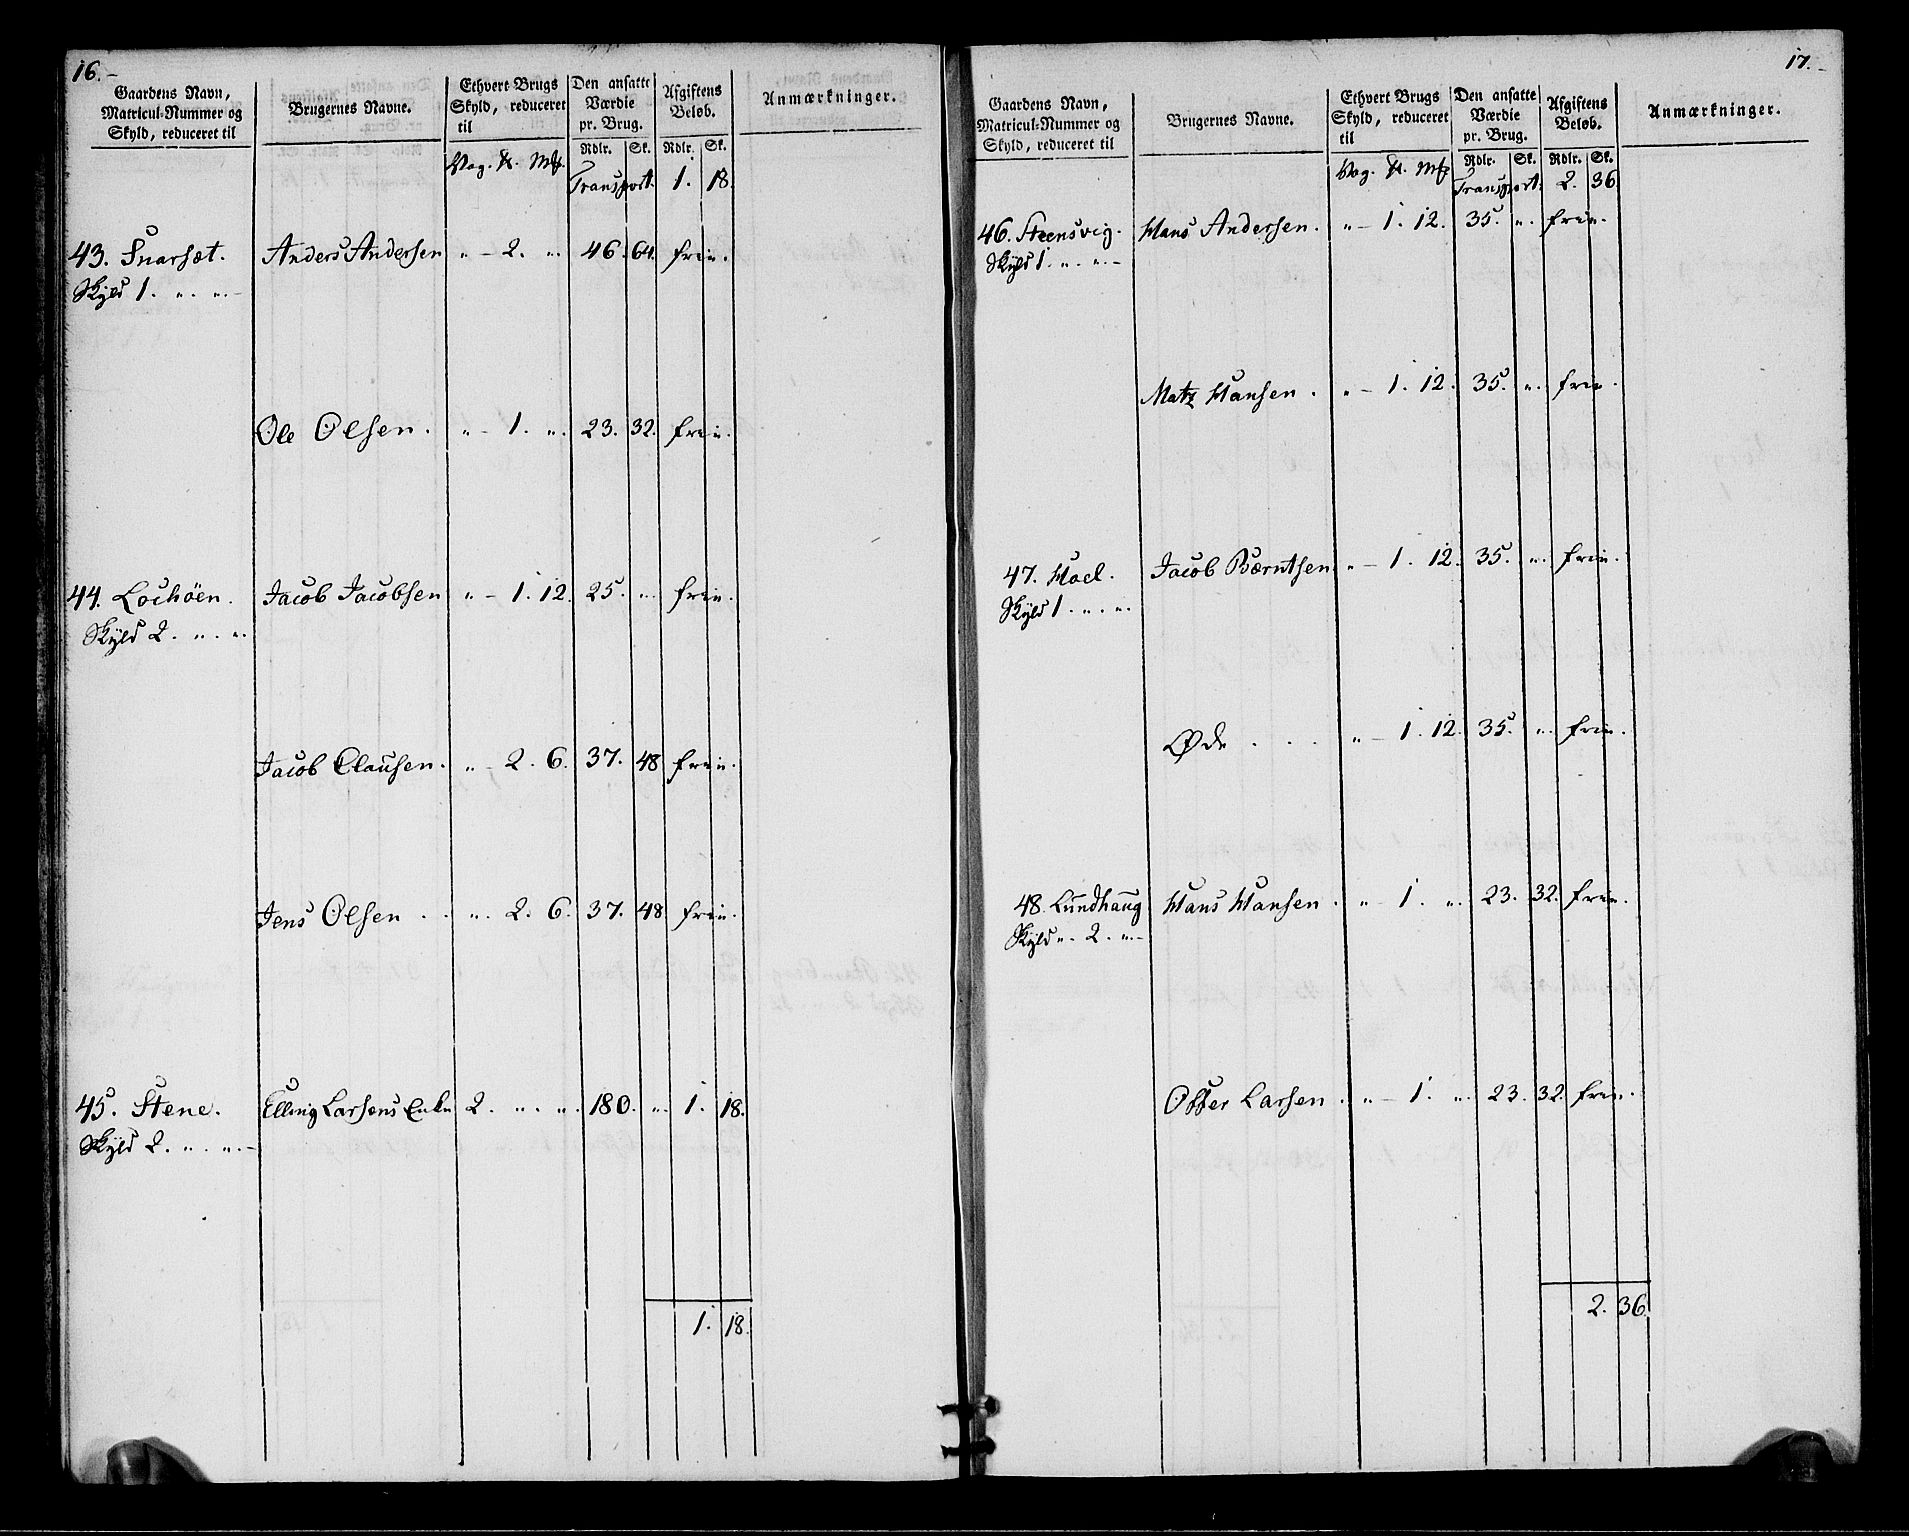 16.
Gaardens Navn, Matricul-Nummer og Skyld, reduceret til | Brugernes Navne. | Ethvert Brugs Skyld, reduceret til | Den ansatte Værdie pr. Brug. | Afgiftens Beløb. | Anmærkninger.
Vog. ℔. Mk. | Rdlr. | Sk. | Rdlr. | Sk.
Transport. 1. 18.
43. Snarsæt. Anders Andersen „ - 2. „. 46. 64. frie.
Skyld 1. „. „. -
Ole Olsen. „ - 1. „. 23. 32. frie.
44. Lochöen. Jacob Jacobsen „ - 1. 12. 25. „. frie.
Skyld 2. „. „.
Jacob Clausen. „ - 2. 6. 37. 48 frie.
Jens Olsen . . „. 2. 6. 37. 48 frie.
45. Stene. Elling Larsens Enke 2. „. „. 180. „. 1. 18.
Skyld 2. „. „. -
1. 18.
17.
Gaardens Navn, Matricul-Nummer og Skyld, reduceret til | Brugernes Navne. | Ethvert Brugs Skyld, reduceret til | Den ansatte Værdie pr. Brug. | Afgiftens Beløb. | Anmærkninger.
Vog. ℔. Mk. | Rdlr. | Sk. | Rdlr. | Sk.
Transport. 2. 36.
46. Steensvig. Hans Andersen. „ - 1. 12. 35. „. frie.
Skyld 1. „. „. -
Matz Hansen . „ - 1. 12. 35. „. frie.
47. Hoel. Jacob Bærntsen „ - 1. 12. 35. „. frie.
Skyld 1. „. „.
Øde . . . „ - 1. 12. 35. „. frie.
48. Lundhaug Hans Hansen . „ - 1. „. 23. 32. frie.
Skyld „. 2. „. -
Otter Larsen . „ - 1. „. 23. 32. frie.
2. 36.